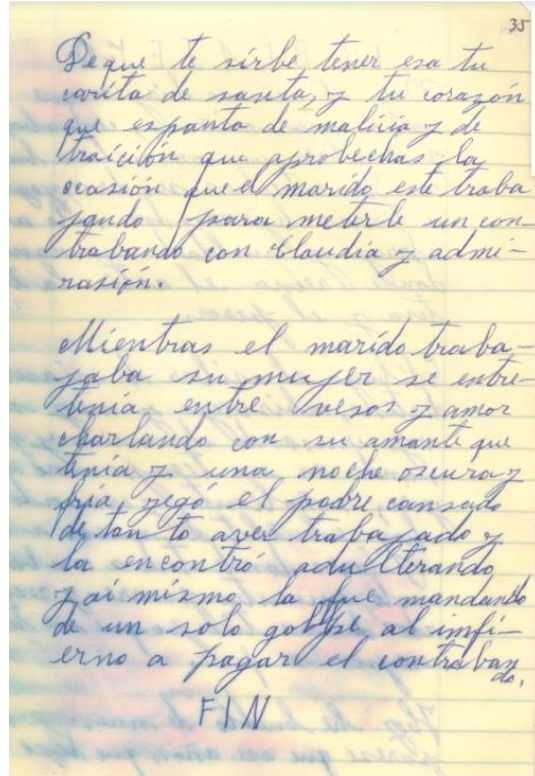 35
De que te sirbe tener esa tu
carita de santa, y tu corazón
que espanta de malicia y de
traición que aprobechas la
ocasión que el marido este traba
jando para meterle un con-
trabando con Claudia y admi-
rasión.
Mientras el marido traba-
jaba su mujer se entre-
tenía entre vesos y amor
charlando con su amante que
tenía y una noche oscura y
fría yegó el pobre cansado
de tanto aver trabajado y
la encontró adulterando
y ai mismo la fue mandando
de un solo golpe al imfi-
erno a pagar el contraban
do.
FIN